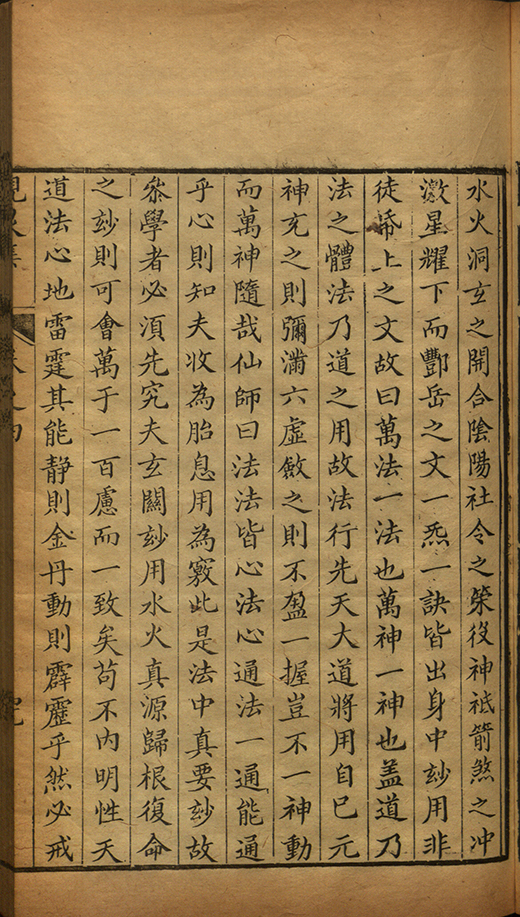 水火洞玄之開合陰陽社令之榮役神祗箭煞之冲
激星耀下而酆岳之文一炁一訣皆出身中玅用非
徒帋上之文故曰萬法一法也萬神一神也盖道乃
法之體法乃道之用故法行先天大道將用自已元
神充之則彌滿六虛斂之則不盈一握豈不一神動
而萬神隨哉仙師曰法法皆心法心通法一通能通
乎心則知夫收為胎息用為竅此是法中真要玅故
叅學者必須先究夫玄關玅用水火真源歸根復命
之玅則可會萬于一百慮而一致矣苟不內明性天
道法心地雷霆其能静則金丹動則霹靂乎然必戒